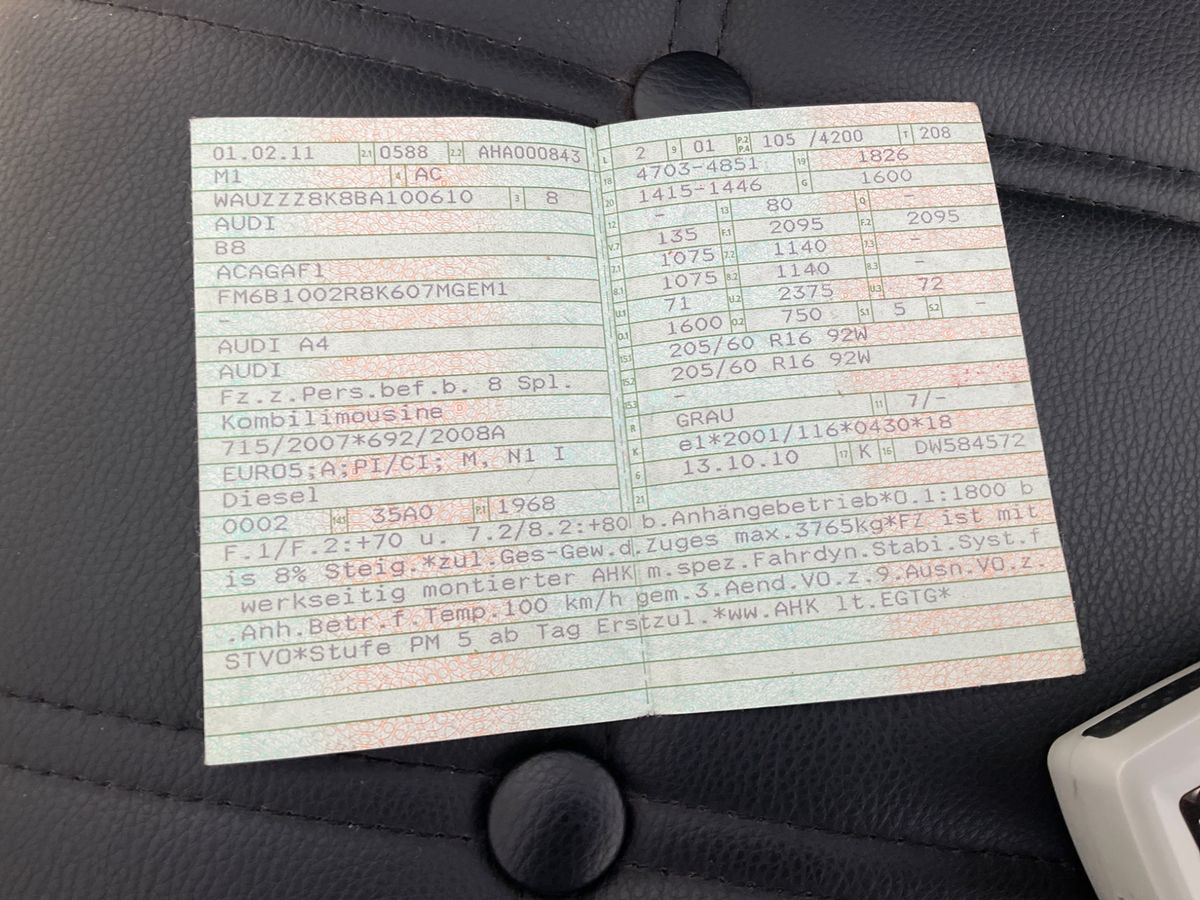 01.02.11 2.1 0588 2.2 AHA000843
M1 4 AC
WAUZZZ8K8BA100610 3 8
AUDI
B8
ACAGAF1
FM6B1002R8K607MGEM1
-
AUDI A4
AUDI
Fz.z.Pers.bef.b. 8 Spl.
Kombilimousine
715/2007*692/2008A
EURO5;A;PI/CI; M, N1 I
Diesel
0002 14.1 35A0 P.1 1968
L 2 9 01 P.2 P.4 105 /4200 T 208
18 4703-4851 19 1826
20 1415-1446 G 1600
12 - 13 80 Q -
V.7 135 F.1 2095 F.2 2095
7.1 1075 7.2 1140 7.3 -
8.1 1075 8.2 1140 8.3 -
U.1 71 U.2 2375 U.3 72
O.1 1600 O.2 750 S.1 5 S.2 -
15.1 205/60 R16 92W
15.2 205/60 R16 92W
15.3 -
R GRAU 11 7/-
K e1*2001/116*0430*18
6 13.10.10 17 K 16 DW584572
21
F.1/F.2:+70 u. 7.2/8.2:+80 b.Anhängebetrieb*O.1:1800 b
is 8% Steig.*zul.Ges-Gew.d.Zuges max.3765kg*FZ ist mit
werkseitig montierter AHK m.spez.Fahrdyn.Stabi.Syst.f
.Anh.Betr.f.Temp.100 km/h gem.3.Aend.VO.z.9.Ausn.VO.z.
STVO*Stufe PM 5 ab Tag Erstzul.*ww.AHK lt.EGTG*